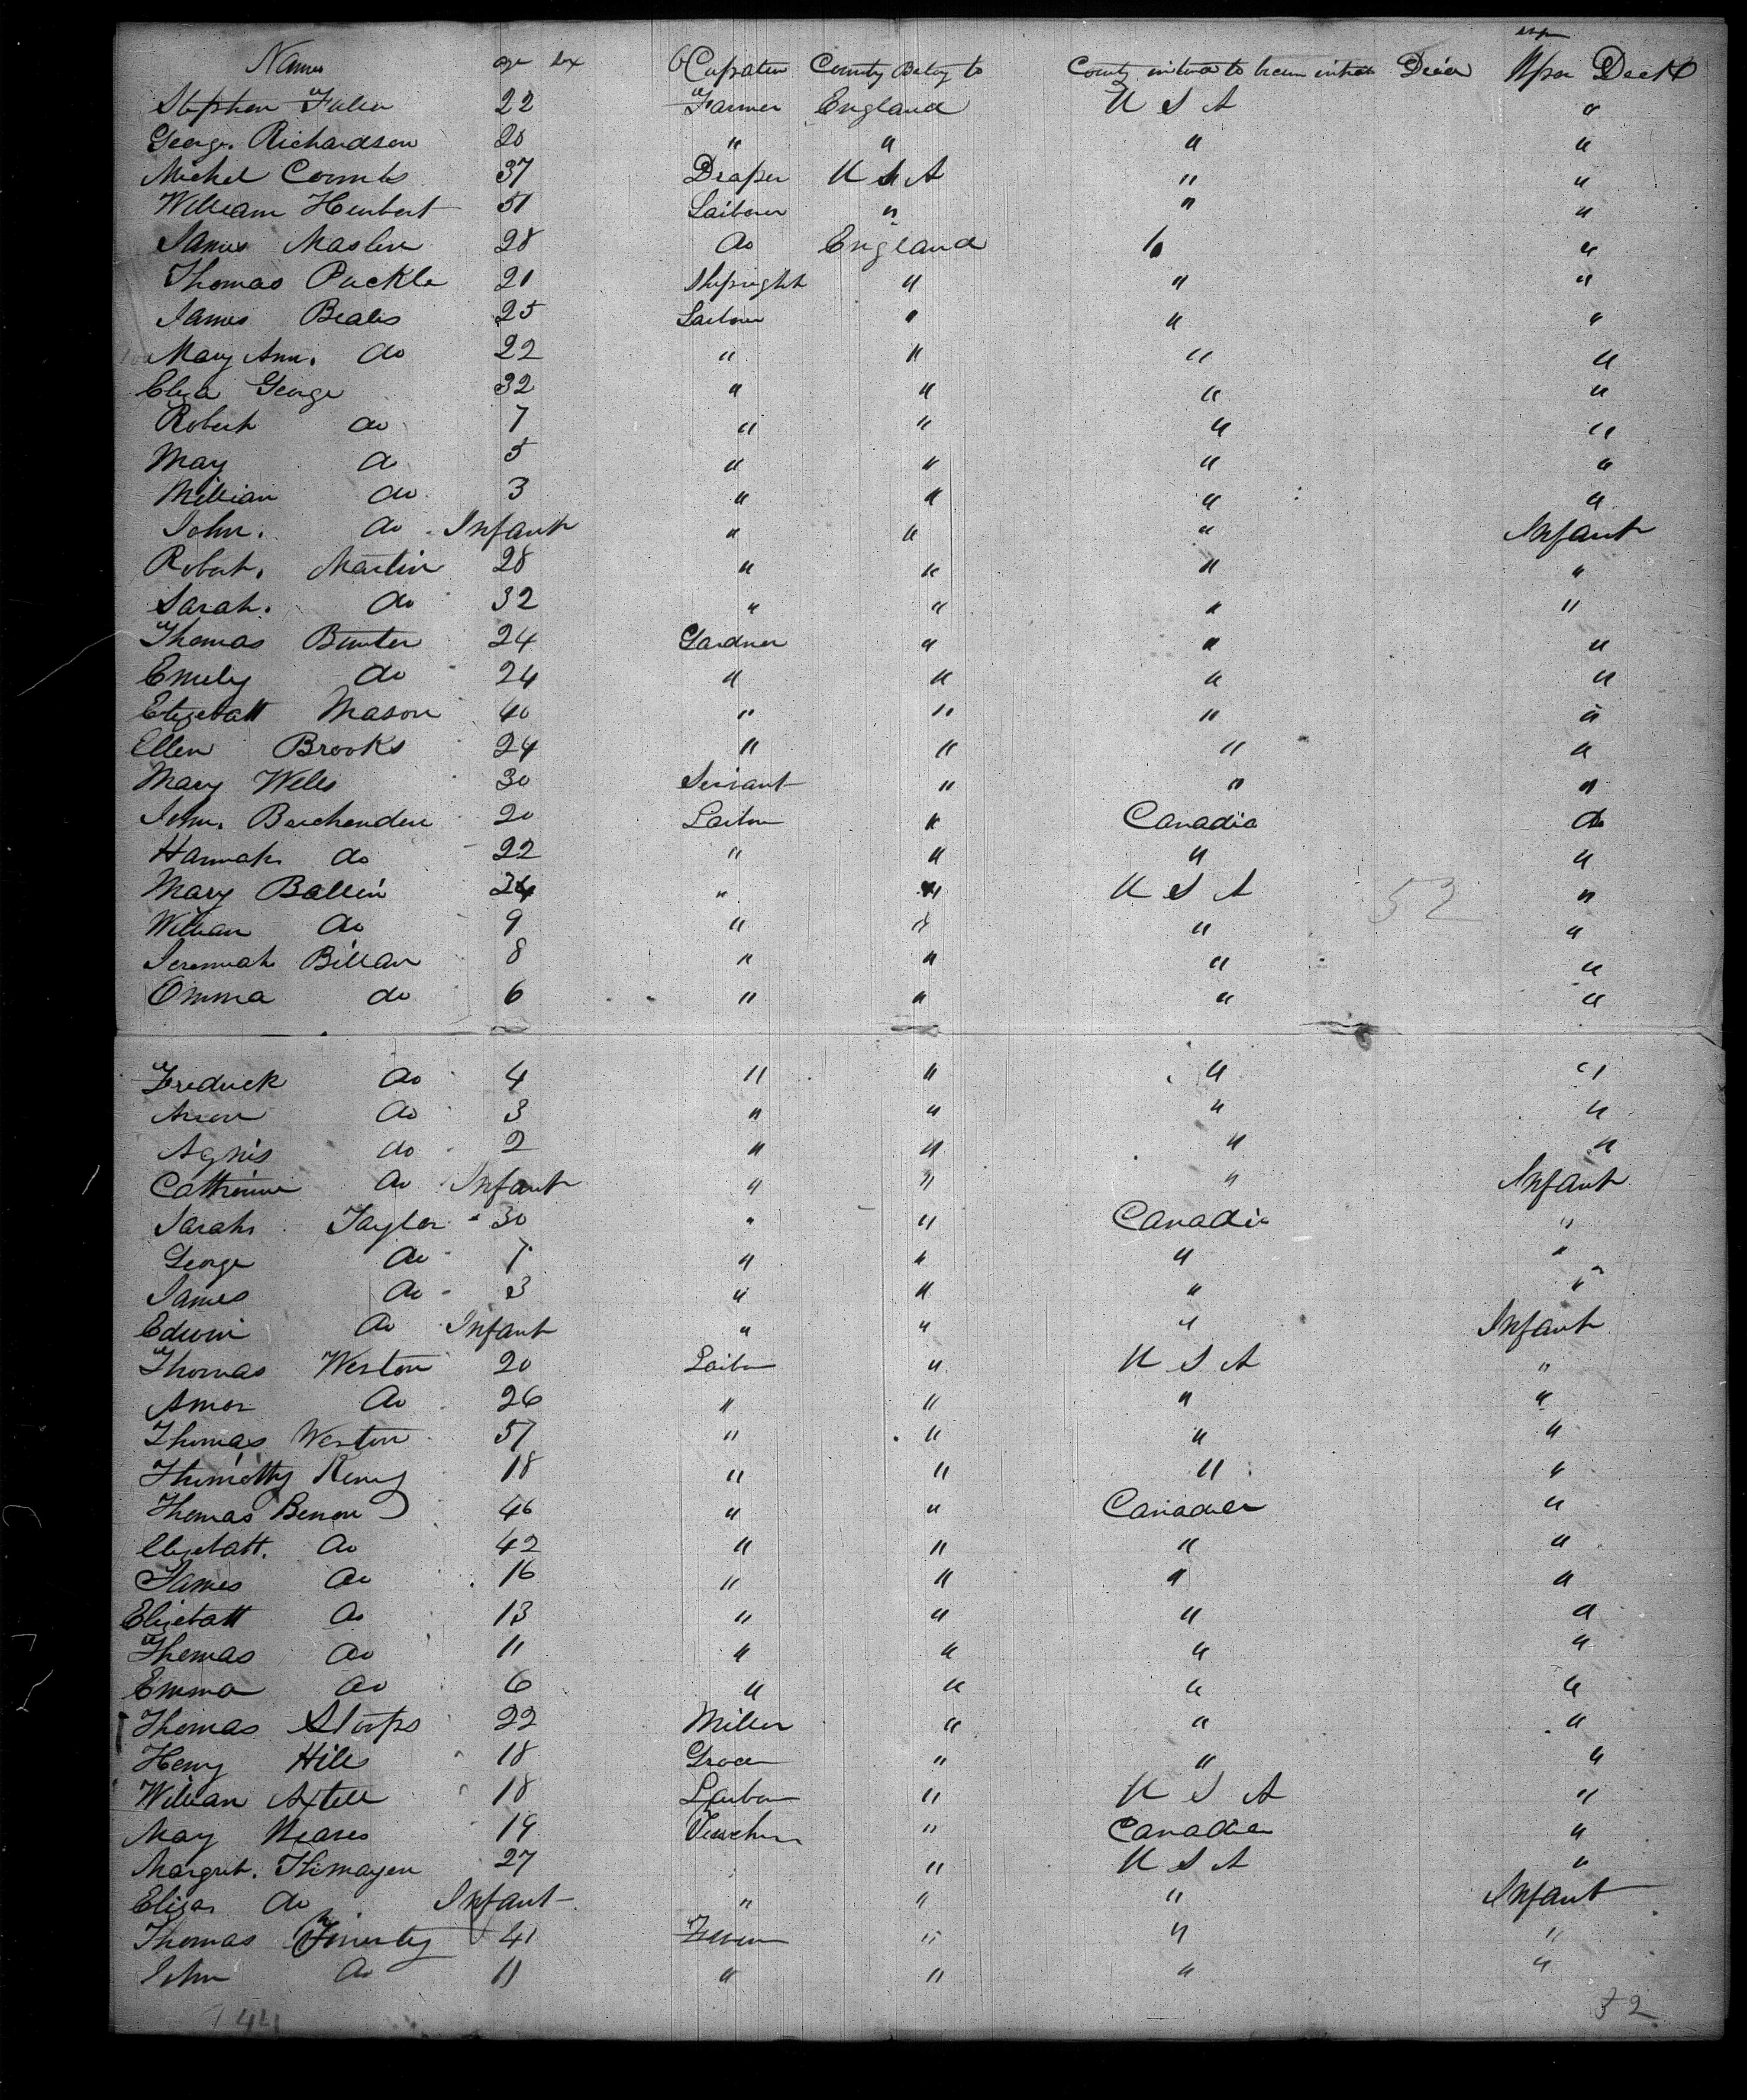 Names age sex Ocupation County Belong to County intend to becum inhab Died Uper Deck
Stephen Fuller 22 Farmer England U S A "
George Richardson 20 " " " "
Michel Coombs 37 Draper U S A " "
William Herbert 51 Laibour " " "
James Maslin 28 do England " "
Thomas Puckle 21 Shipright " " "
James Beales 25 Laibour " " "
Mary Ann. do 22 " " " "
Eliza George 32 " " " "
Robert do 7 " " " "
May do 5 " " " "
William do 3 " " " "
John. do Infant " " " Infant
Robert. Martin 28 " " " "
Sarah. do 32 " " " "
Thomas Bunter 24 Gardner " " "
Emily do 24 " " " "
Elizebatt Mason 40 " " " "
Ellen Brooks 24 " " " "
Mary Wells 30 Servant " " "
John. Barchenden 20 Laibou " Canadia do
Hannah do 22 " " " "
Mary Ballein " " U S A 52 "
William do 9 " " " "
Jeremiah Billan 8 " " " "
Omma do 6 " " " "
Fredrick do 4 " " " "
do 3 " " " "
Agnis do 2 " " " "
Cathrinne do Infant " " " Infant
Sarah Taylor 30 " " Canadia "
George do 7 " " " "
James do 3 " " " "
Edwin do Infant " " " Infant
Thomas Weston 20 Laibou " U S A "
Amor do 26 " " " "
Thomas Weston 57 " " " "
Thimotthy Remy 18 " " " "
Thomas Benon 46 " " Canadia "
Elizebatt. do 42 " " " "
James do 16 " " " "
Elizebatt do 13 " " " "
Thomas do 11 " " " "
Emma do 6 " " " "
Thomas Stoops 22 Miller " " "
Henry Hills 18 Grocer " " "
William Axtell 18 Laubou " U S A "
May Neares 19 " Canadia "
Margret. 27 " U S A "
Eliza do Infant " " " Infant
Thomas Finerty 41 " " "
John do 11 " " " "
144 32